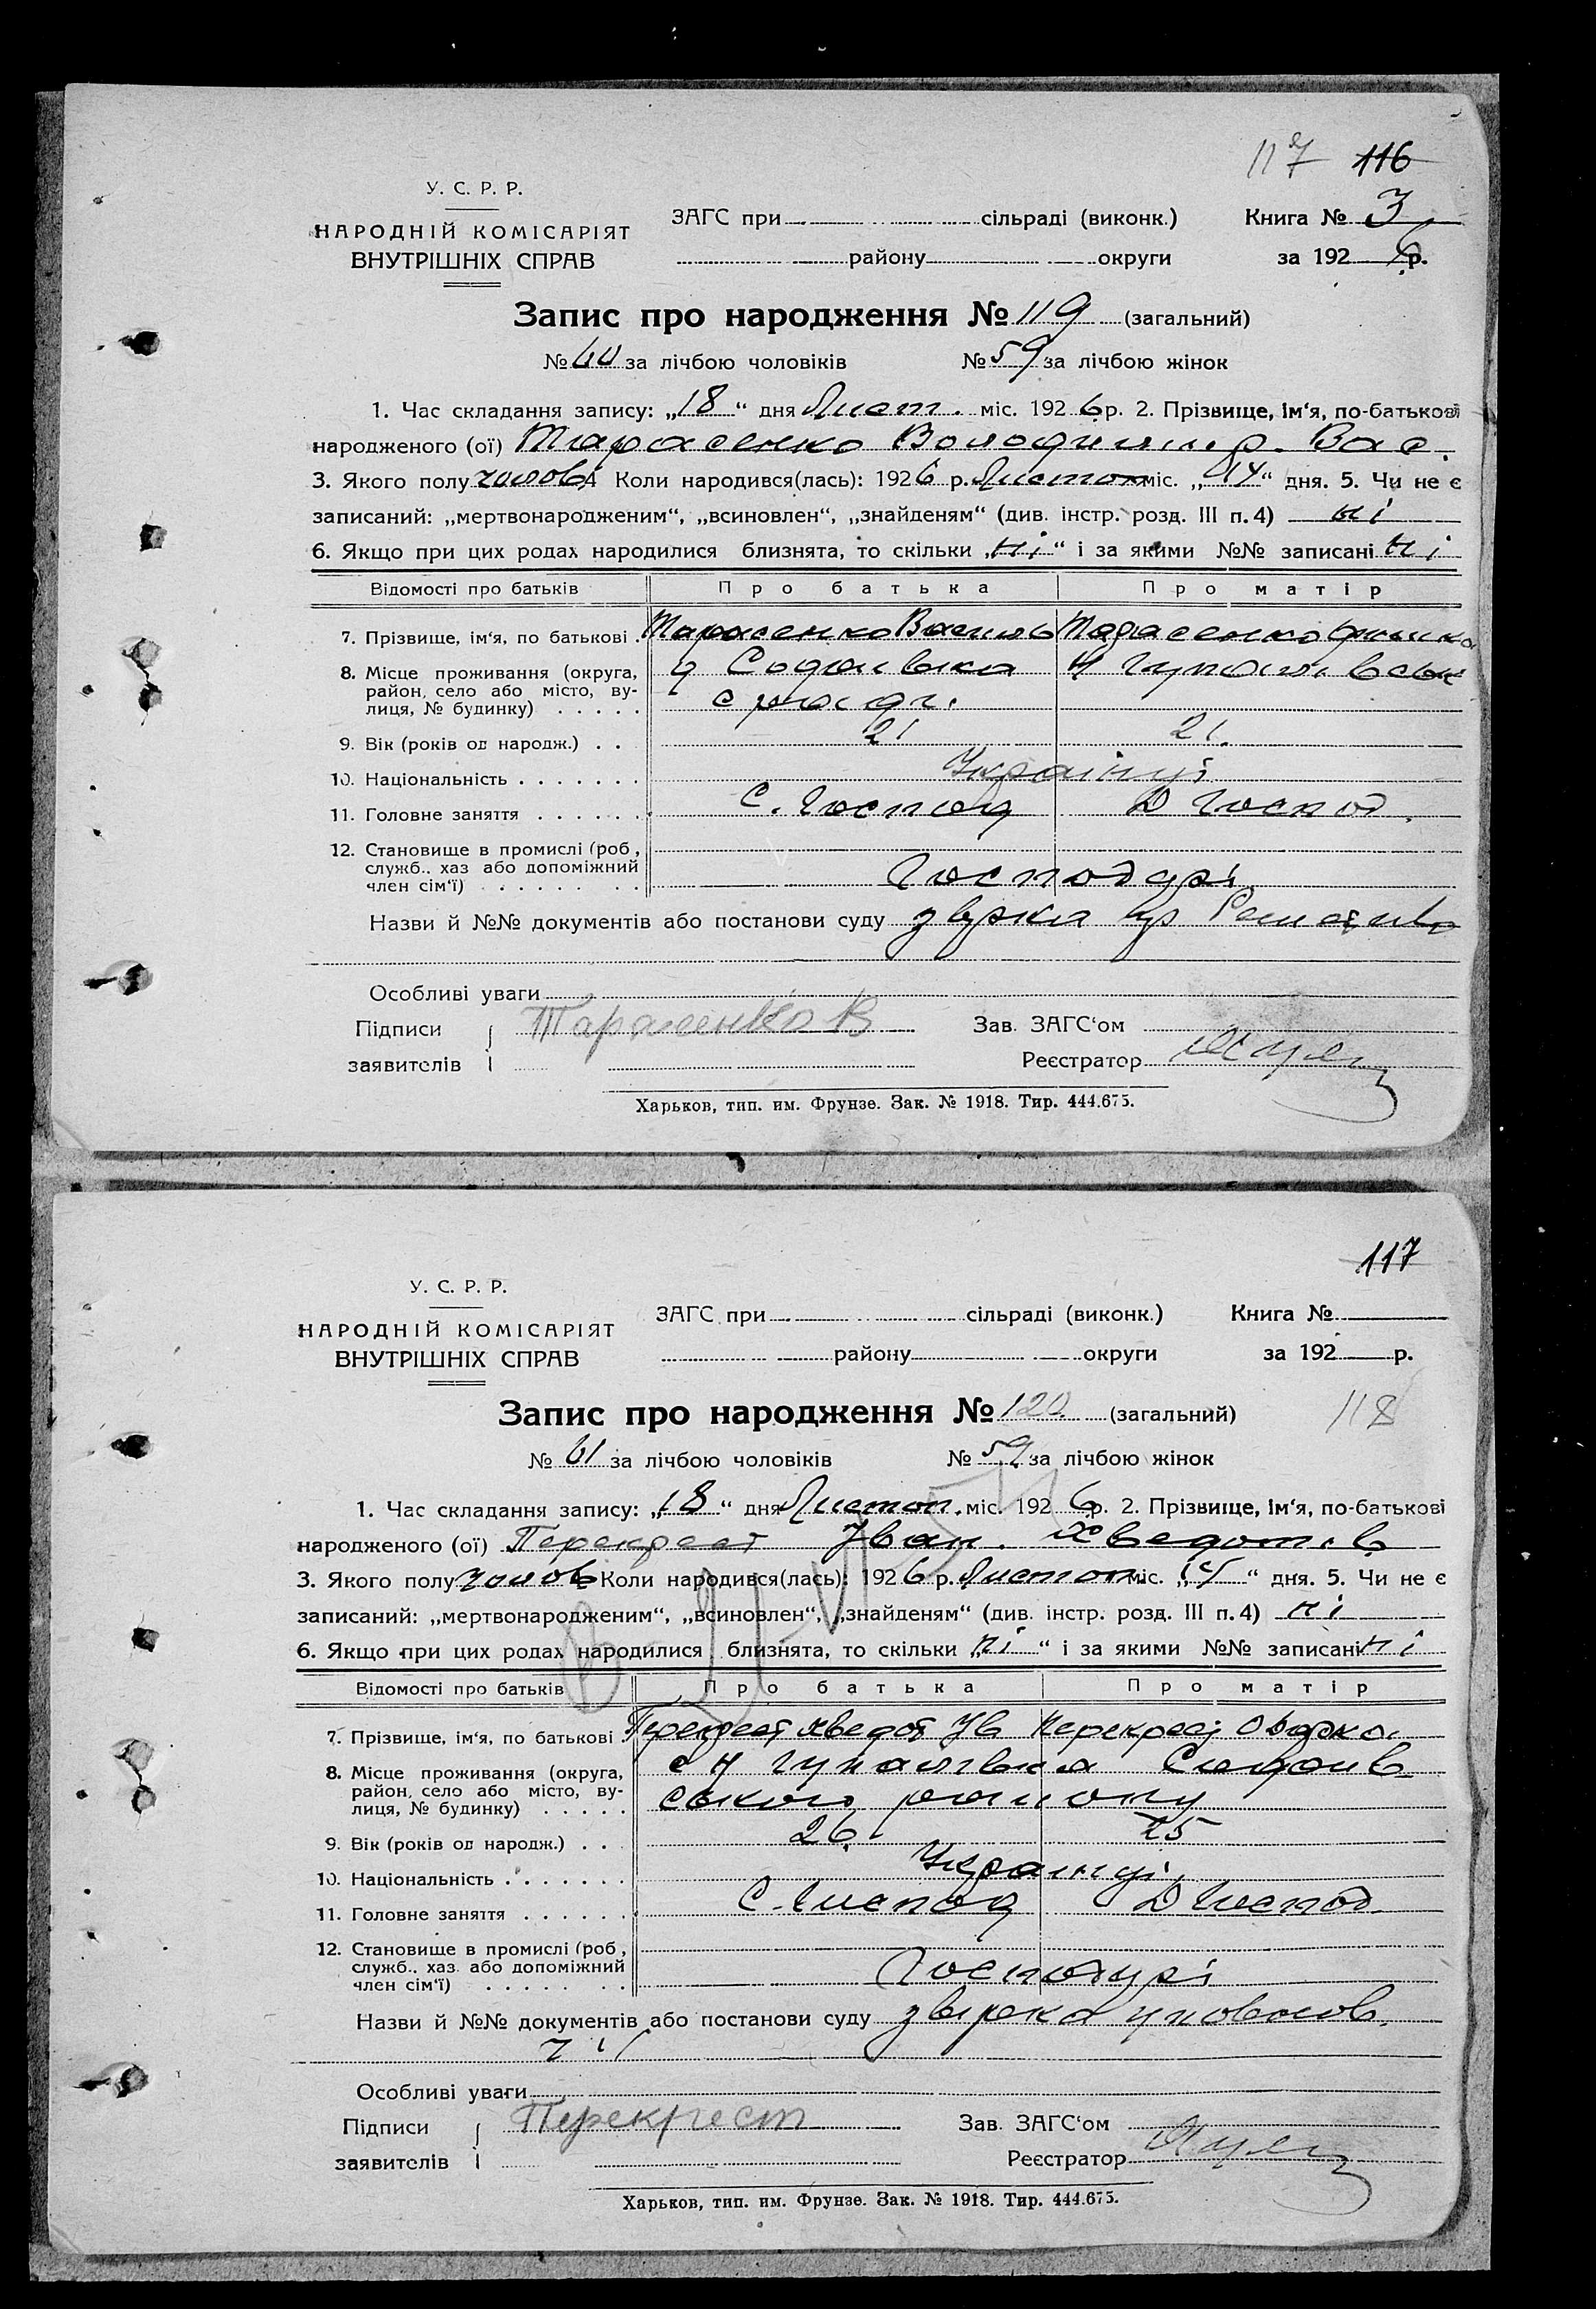 117 116
У. С. Р. Р.
НАРОДНІЙ КОМІСАРІЯТ
ВНУТРІШНІХ СПРАВ
ЗАГС при сільраді (виконк.)
району округи
Книга № 3
за 1926 р.
Запис про народження № 119 (загальний)
№ 60 за лічбою чоловіків № 59 за лічбою жінок
1. Час складання запису: „18“ дня Лист. міс. 1926 р. 2. Прізвище, ім‘я, по-батькові
народженого (ої) Тарасенко Володимир. Вас.
3. Якого полу чолові Коли народився(лась): 1926 р. Листоп міс. „14“ дня. 5. Чи не є
записаний: „мертвонародженим“, „всиновлен“, „знайденям“ (див. інстр. розд. III п. 4) ні
6. Якщо при цих родах народилися близнята, то скільки „ні“ і за якими №№ записані ні
Відомості про батьків Про батька Про матір
7. Прізвище, ім‘я, по батькові Тарасенко Василь Тарасенко
8. Місце проживання (округа,
район, село або місто, ву-
лиця, № будинку)
9. Вік (років од народж.) 21 21.
10. Національність Українці
11. Головне заняття С. Господ Д Господ.
12. Становище в промислі (роб.,
служб., хаз. або допоміжний
член сім‘ї) Господарі
Назви й №№ документів або постанови суду
Особливі уваги
Підписи Тарасенко В
заявителів
Зав. ЗАГС‘ом
Реєстратор
Харьков, тип. им. Фрунзе. Зак. № 1918. Тир. 444.675.
117
У. С. Р. Р.
НАРОДНІЙ КОМІСАРІЯТ
ВНУТРІШНІХ СПРАВ
ЗАГС при сільраді (виконк.)
району округи
Книга №
за 192 р.
Запис про народження № 120 (загальний) 118
№ 61 за лічбою чоловіків № 59 за лічбою жінок
1. Час складання запису: „18“ дня Листоп. міс. 1926 р. 2. Прізвище, ім‘я, по-батькові
народженого (ої) Перекрест Іван. Хведотів
3. Якого полу чолов Коли народився(лась): 1926 р. Листоп. міс. дня. 5. Чи не є
записаний: „мертвонародженим“, „всиновлен“, „знайденям“ (див. інстр. розд. III п. 4) ні
6. Якщо при цих родах народилися близнята, то скільки „ні“ і за якими №№ записані ні
Відомості про батьків Про батька Про матір
7. Прізвище, ім‘я, по батькові Перекрест Хведот Ів Перекрест Одарка
8. Місце проживання (округа,
район, село або місто, ву-
лиця, № будинку) ського району
9. Вік (років од народж.) 26. 25
10. Національність Українці
11. Головне заняття С. Господ Д Господ.
12. Становище в промислі (роб.,
служб., хаз. або допоміжний
член сім‘ї) Господарі
Назви й №№ документів або постанови суду
Особливі уваги
Підписи Перекрест
заявителів
Зав. ЗАГС‘ом
Реєстратор
Харьков, тип. им. Фрунзе. Зак. № 1918. Тир. 444.675.